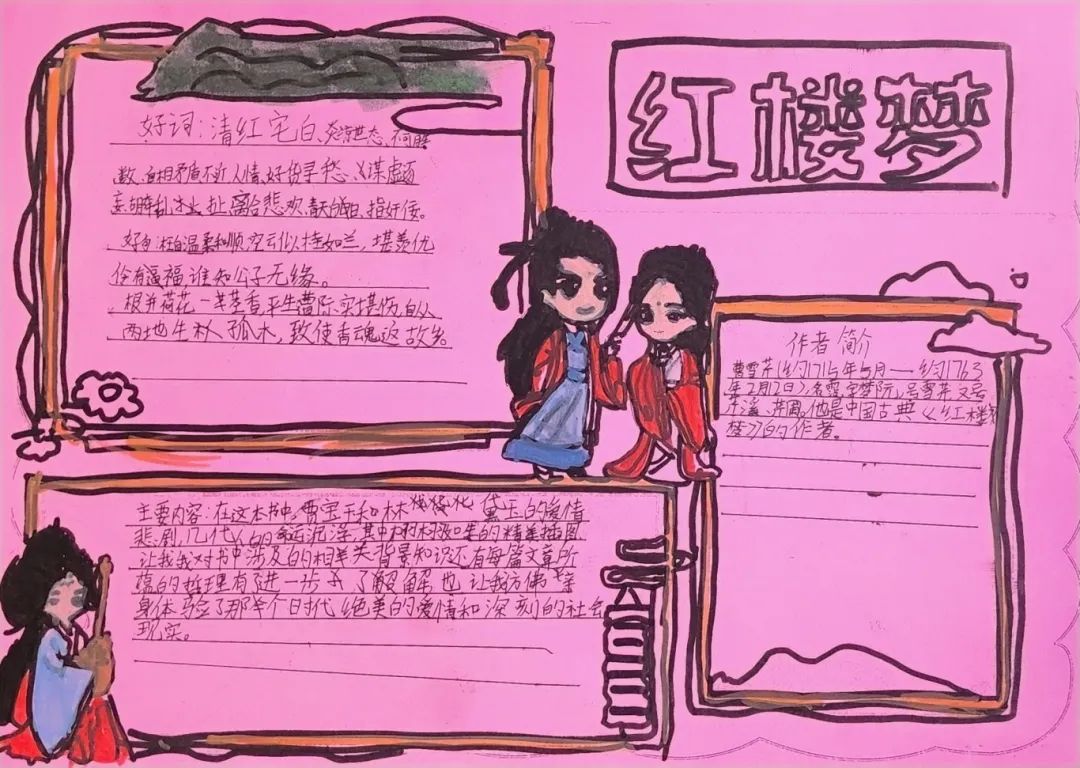 红楼梦
好词：清红宅白、炎凉世态、不可胜
数、自相矛盾、不近人情、好货寻愁、
离合悲欢、青天白日、指奸佞。
好句：枉自温柔和顺，空云似桂如兰，堪羡优
伶有逼福谁知公子无缘。
根并荷花一茎香，平生曹际实堪伤，自从
两地生朴孤木，致使香魂返故乡
作者简介
曹雪芹（约1715年5月——约1763
年2月12日），名霑，字梦阮，号雪芹，又号
芹溪、芹圃。他是中国古典《红楼
梦》的作者。
主要内容：在这本书中，曹宝玉和林黛玉的爱情
悲剧，几代人的命运沉浮，其中的精美插图，
让我我对书中涉及的相关背景知识还有每篇文章所
蕴的哲理有了进一步了解，也让我仿佛亲
身体验了那个时代绝美的爱情和深刻的社会
现实。